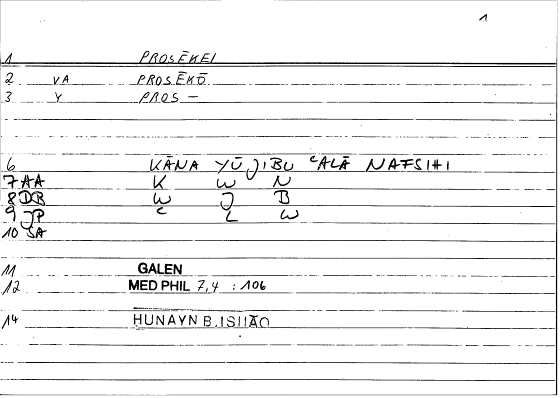 1
1 PROSĒKEI
2 VA PROSĒKŌ
3 Y PROS –
6 KĀNA YŪJIBU ʿALĀ NAFSIHI
7 AA K W N
8 DB W J B
9 JP ʿ L W
10 SA
11 GALEN
12 MED PHIL 7,4 : 106
14 HUNAYN B. ISḤĀQ